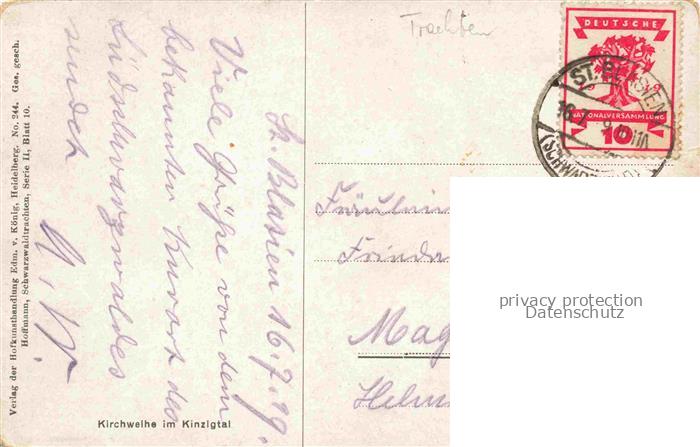 Trachten
DEUTSCHE
NATIONALVERSAMMLUNG
10
ST. BLASIEN
16.7.
(SCHWARZWALD)
St. Blasien 16.7.19.
Viele Grüße von dem
bekannten Kurort des
Südschwarzwaldes
sendet
Fräulein
Frieda
Mag
Helm
privacy protection
Datenschutz
Kirchweihe im Kinzigtal
Verlag der Hofkunsthandlung Edm. v. König, Heidelberg. No. 244. Ges. gesch.
Hoffmann, Schwarzwaldtrachten, Serie II, Blatt 10.